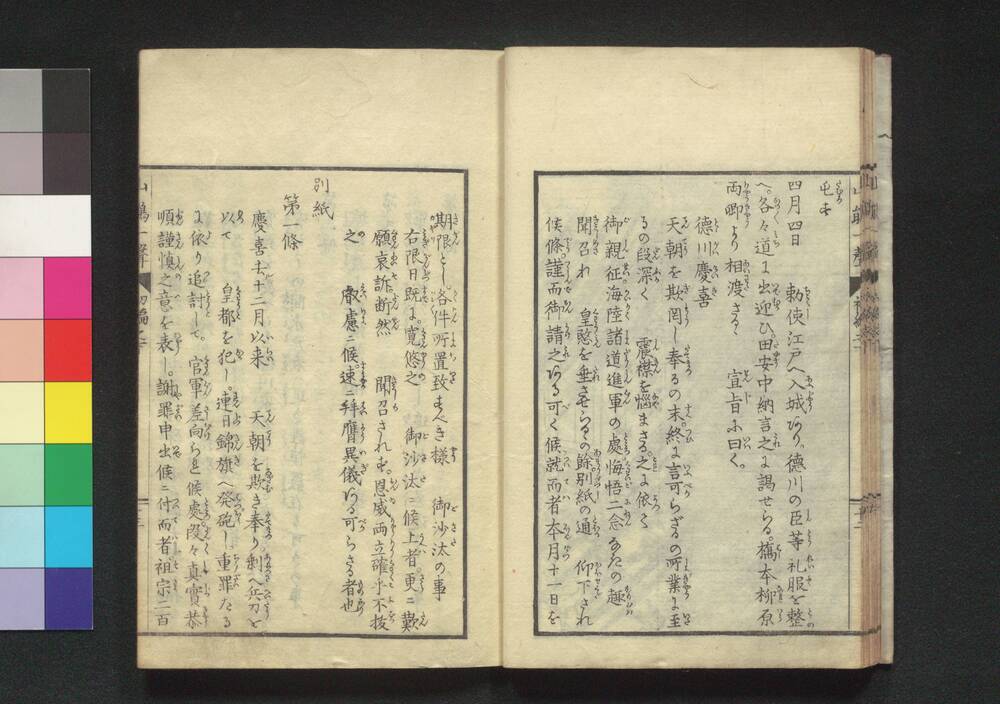 屯す
四月四日　勅使江戸へ入城あり。徳川の臣等礼服を整
へ。各々道に出迎ひ田安中納言之に謁せらる。橋本柳原
両卿より相渡さるゝ　宣旨に曰く。
徳川慶喜
天朝を欺罔し奉るの末。終に言可らざるの所業に至
るの段深く　震襟を悩まさる。之に依て
御親征海陸諸道進軍の處悔悟二念なきの趣
聞召れ　皇愍を垂させらるゝの餘別紙の通　仰下され
候條。謹而御請之ある可く候就而者本月十一日を
期限とし各件所置致すべき様　御沙汰の事
右限日既に。寛悠之　御沙汰ニ候上者。更ニ歎
願哀訴断然　聞召されず。恩威両立確乎不抜
之　叡慮ニ候。速ニ拝膺異儀ある可らさる者也
別紙
第一條
慶喜去十二月以来　天朝を欺き奉り剰へ兵力を
以て　皇都を犯し。連日錦旗へ発砲し。重罪たる
に依り追討して。官軍差向られ候處。段々真實恭
順謹慎之意を表し。謝罪申出候ニ付而者。祖宗二百